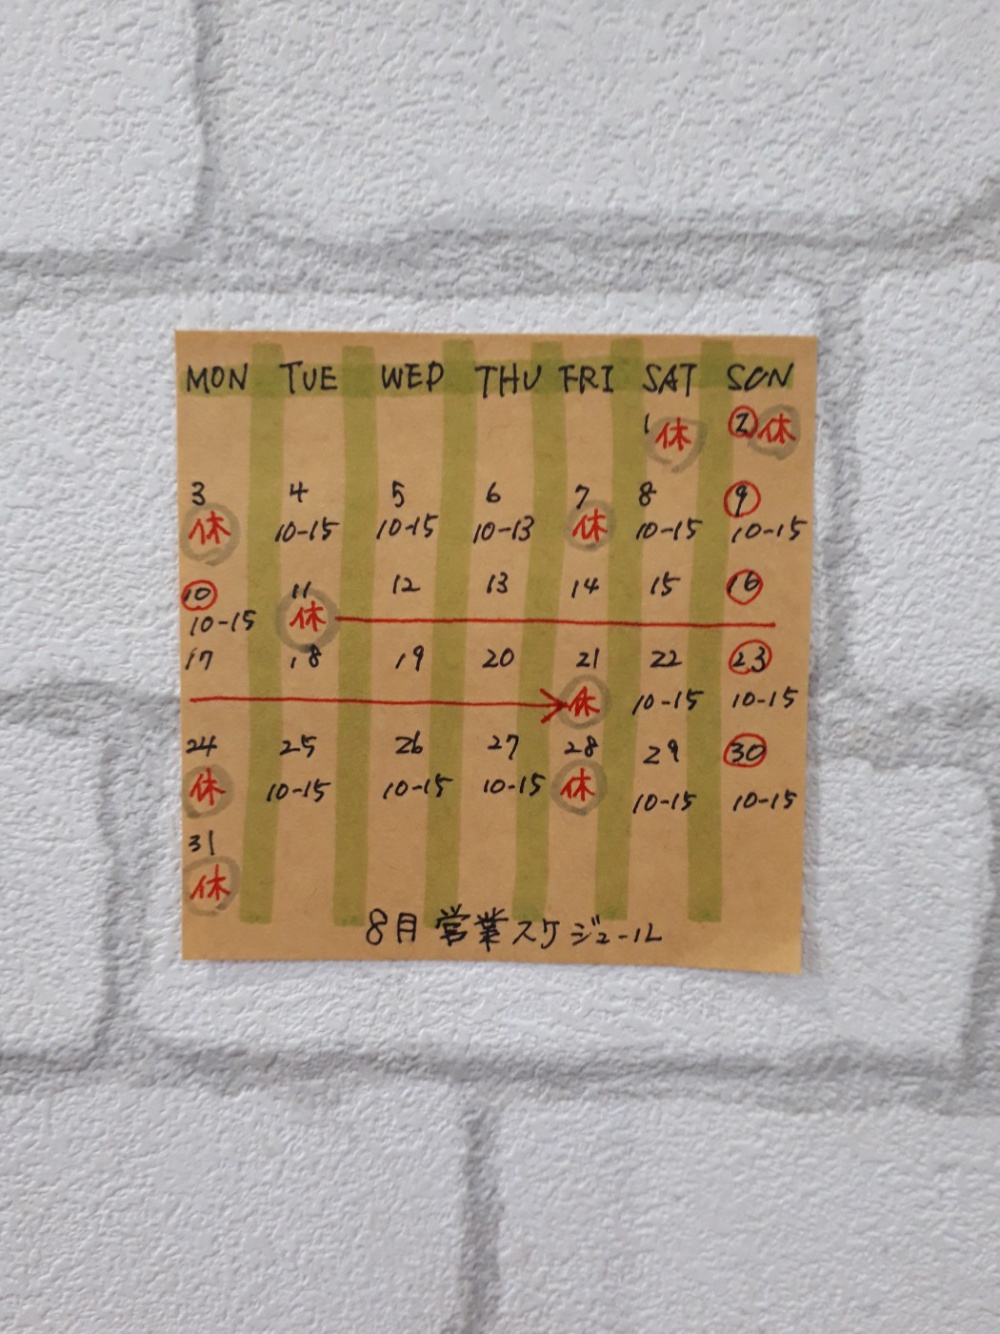 MON TUE WED THU FRI SAT SUN
1 休 2 休
3 4 5 6 7 8 9
休 10-15 10-15 10-13 休 10-15 10-15
10 11 12 13 14 15 16
10-15 休
17 18 19 20 21 22 23
休 10-15 10-15
24 25 26 27 28 29 30
休 10-15 10-15 10-15 休 10-15 10-15
31
休
8月 営業スケジュール